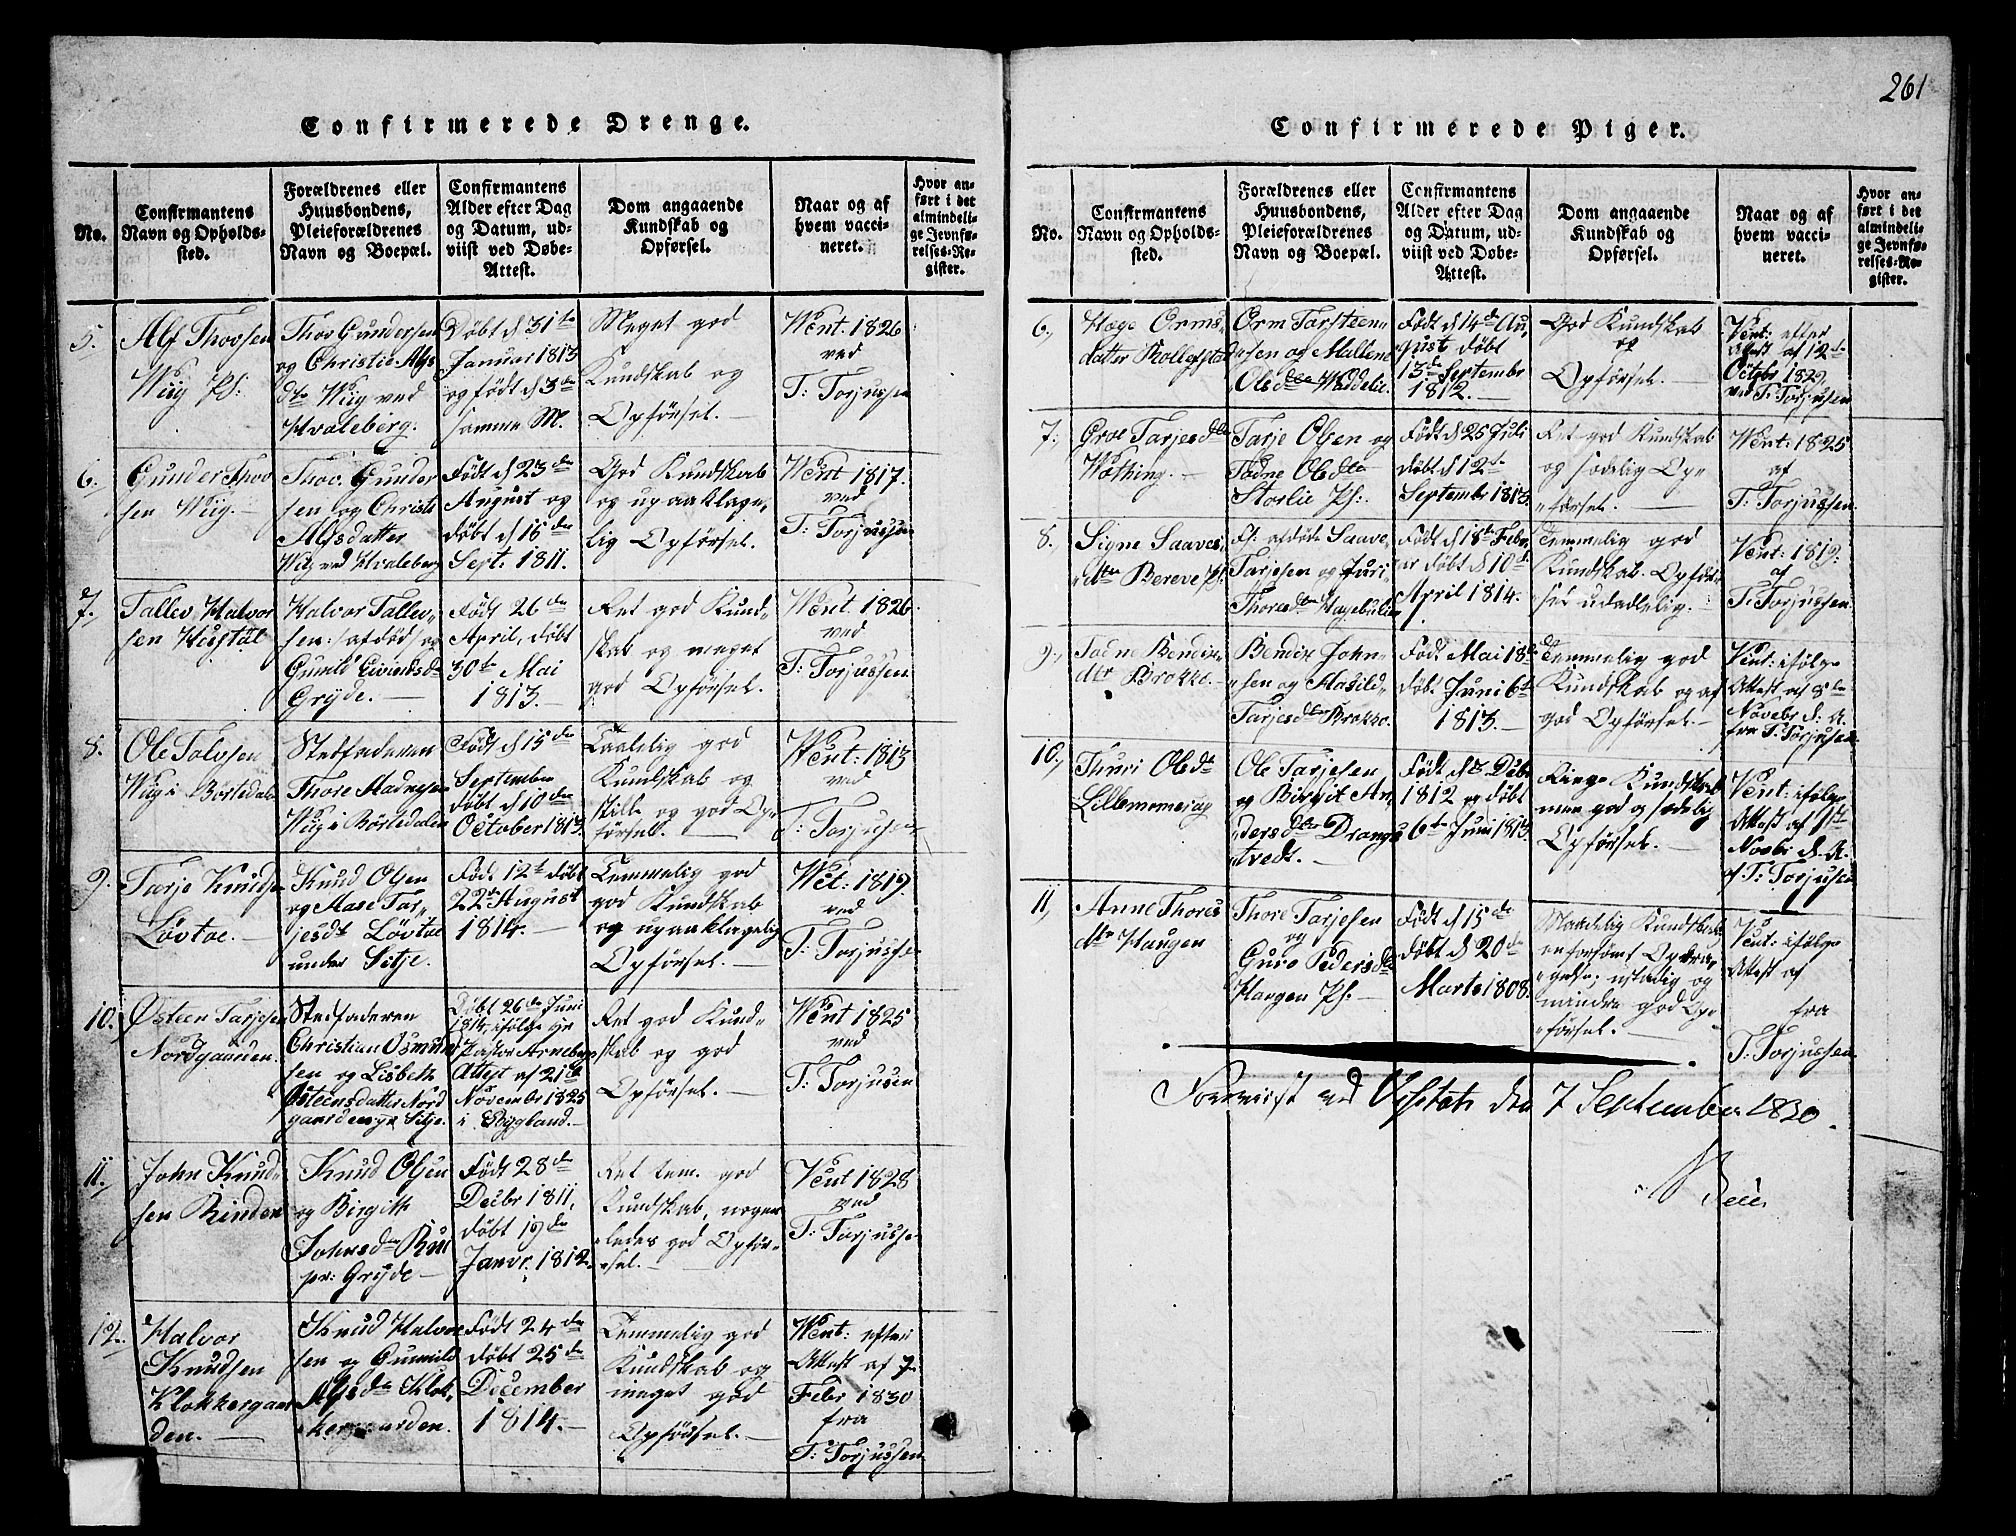 261
Confirmerede Drenge.
No.
Confirmantens
Navn og Opholds-
sted.
Forældrenes eller
Huusbondens,
Pleieforældrenes
Navn og Boepæl.
Confirmantens
Alder efter Dag
og Datum, ud-
viist ved Døbe-
Attest.
Dom angaaende
Kundskab og
Opførsel.
Naar og af
hvem vacci-
neret.
Hvor an-
ført i det
almindeli-
ge Jevnfø-
relses-Re-
gister.
5.
Alf Thovsen
Wiig Pl:
Thov Gundersen
og Christie Alfs
dtr Wiig ved
Hvaleberg.
Døbt d 31te
Januar 1813
og født d 3de
samme M.
Meget god
Kundskab og
Opførsel.
Vent: 1826
ved
T: Torjussen
6.
Gunder Thov
sen Wiig.
Thov Gunder
sen og Christi
Alfsdatter
Wiig ved Hvaleberg
Født d 23de
August og
døbt d 15de
Sept: 1811.
God Kundskab
og upaaklage,
lig Opførsel.
Vent 1817.
ved
T: Torjussen
7.
Tallev Halvor
sen Histøl
Halvor Tallev-
sen: /afdød/ og
Gunild Eivindsdr
Gryde.
Født 26de
April, døbt
30te Mai
1813.
Ret god Kund-
skab og meget
god Opførsel.
Vent. 1826
ved
T: Torjussen.
8.
Ole Tolvsen
Wiig i Børtedalen
Stedfaderen
Thore Aadnesen
Wiig i Børtedalen
Født d 15de
September
døbt d 10de
October 1813.
Taalelig god
Kundskab og
stille og god Op-
førsel.
Vent: 1813
ved
T: Torjussen
9.
Tarje Knudsen
Løvtoe.
Knud Olsen
og Aase Tar-
jesdt Løvtoe
under Sitje.
Født 12te døbt
22de August
1814.
Temmelig god
god Kundskab
og upaaklagelig
Opførsel.
Vet: 1819.
ved
T: Torjusse
10.
Østeen Tarjesen
Nordgaarden.
Stedfaderen
Christian Osmun
sen og Lisbeth
Østeensdatter Nord
gaarden Sitje.
Døbt 26de Juni
1814, ifølge Hr
Pastor Arneberg
Attest af 21de
November 1825
i Bygland.
Ret god Kund-
skab og god
Opførsel.
Vent 1825
ved
T: Torjusen
11.
John Knud-
sen Rinden
Knud Olsen
og Birgith
Johnsdr Rin
pr: Gryde
Født 28de
Decbr 1811,
døbt 19de
Janvr. 1812.
Ret tem. god
Kundskab, nogen-
ledes god Opfør-
sel.
Vent 1828
ved
T: Torjusse
12.
Halvor
Knudsen
Klokkergaar
den.
Knud Halvor
sen og Gunnild
Alfsdr Klok-
kergaarden.
Født 24de
døbt 25de
December
1814.
Temmelig god
Kundskab og
meget god
Opførsel.
Vent: efter
Attest af 7
Febr 1830
fra
T: Torjussen
Confirmerede Piger.
No.
Confirmantens
Navn og Opholds-
sted.
Forældrenes eller
Huusbondens,
Pleieforældrenes
Navn og Boepæl.
Confirmantens
Alder efter Dag
og Datum, ud-
viist ved Døbe-
Attest.
Dom angaaende
Kundskab og
Opførsel.
Naar og af
hvem vacci-
neret.
Hvor an-
ført i det
almindeli-
ge Jevnfø-
relses-Re-
gister.
6,
Hæge Orms-
datter Rollefstad
Orm Tarsteen-
sen og Maltene
Olsdtr
Født d 14de Au,
gust døbt
13de Septembr
1812.
God Kundskab
og
Opførsel.
Vent: efter
Attest af 12te
Octobr 1829
ved T: Torjussen
7.
Groe Tarjesdtr
Wøthing.
Tarje Olsen og
Tadne Olsdtr
Storlie Pl:
Født d 25 Juli
døbt d 12te
Septembr 1813.
Ret god Kundskab
og sædelig Op-
førsel.
Vent: 1825
af
T: Torjussen.
8.
Signe Saaves,
dtr Bereve Pl:
Pl: afdøde Saave
Tarjesen og Juri
Thoresdtr Hagebulien
Født d 18de Febr,
ar døbt d 10de
April 1814.
Temmelig god
Kundskab. Opfør-
sel udadlelig.
Vent: 1819:
af
T: Torjussen.
9.,
Tadne Bendix-
dtr Brokke.
Bendix John-
sen og Aasild
Tarjesdtr Brokke.
Født Mai 18de
døbt Juni 6te
1813.
Temmelig god
Kundskab og af
god Opførsel.
Vent: ifølge
Attest af 8de
Novebr d: A.
fra T: Torjusen
10.,
Thuri Olsdtr
Lillemomerag
Ole Tarjesen
og Birgit An-
dersdtr Drangs
tvedt.
Født d Debr
1812 og døbt
6te Juni 1813.
Ringe Kundskab
men god og sædelig
Opførsel.
Vent: ifølge
Attest af 1ste
Novbr d. A.
af T: Torjusen
11,
Anne Thores
dtr Haugen
Thore Tarjesen
og
Guro Pedersdtr
Haugen Pl.
Født d 15de
døbt d 20de
Marts 1808.
Maadelig Kundskab
en forsømt Opdra,
gelse; ustadig og
mindre god Op-
førsel.
Vent: ifølge
Attest af
fra
T: Torjussen.
Foreviist ved Visitats den 7 September 1830.